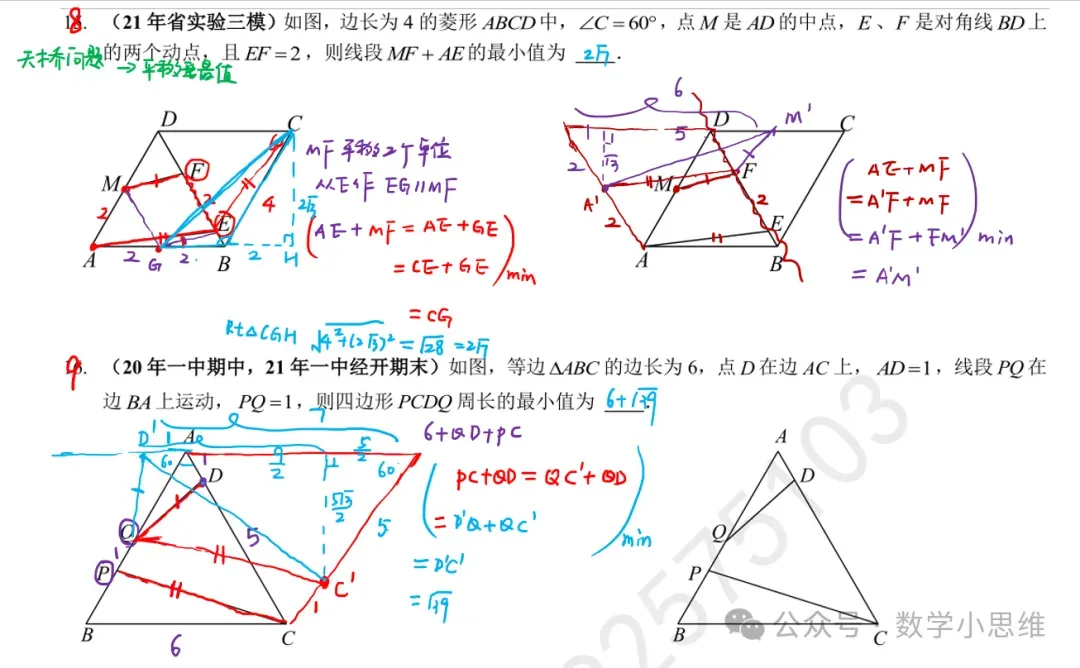 8. （21 年省实验三模）如图，边长为 4 的菱形 ABCD 中，∠C = 60°，点 M 是 AD 的中点，E 、F 是对角线 BD 上
的两个动点，且 EF = 2，则线段 MF + AE 的最小值为 2√7 .
天桥问题 → 平移是最值
D C
M F
2 2 4 2√3
E
A 2 G 2 B 2 H
MF 平移2个单位
从E作 EG∥MF
(AE + MF = AE + GE
= CE + GE)min
= CG
Rt△CGH √4²+(2√3)² = √28 = 2√7
6
1 5 D M' C
2 √3 F
A' M 2
2 E
A B
(AE + MF
= A'F + MF
= A'F + FM')min
= A'M'
9. （20 年一中期中，21 年一中经开期末）如图，等边 △ABC 的边长为 6，点 D 在边 AC 上， AD = 1，线段 PQ 在
边 BA 上运动， PQ = 1，则四边形 PCDQ 周长的最小值为 6+√39 .
7
D' 1 A 9/2 5/2
60 1 60
D
5√3/2
Q 5 5
1
P C'
1
B C
6
6 + QD + PC
(PC + QD = QC' + QD
= D'Q + QC')min
= D'C'
= √39
A
D
Q
P
B C
92575103
公众号 · 数学小思维